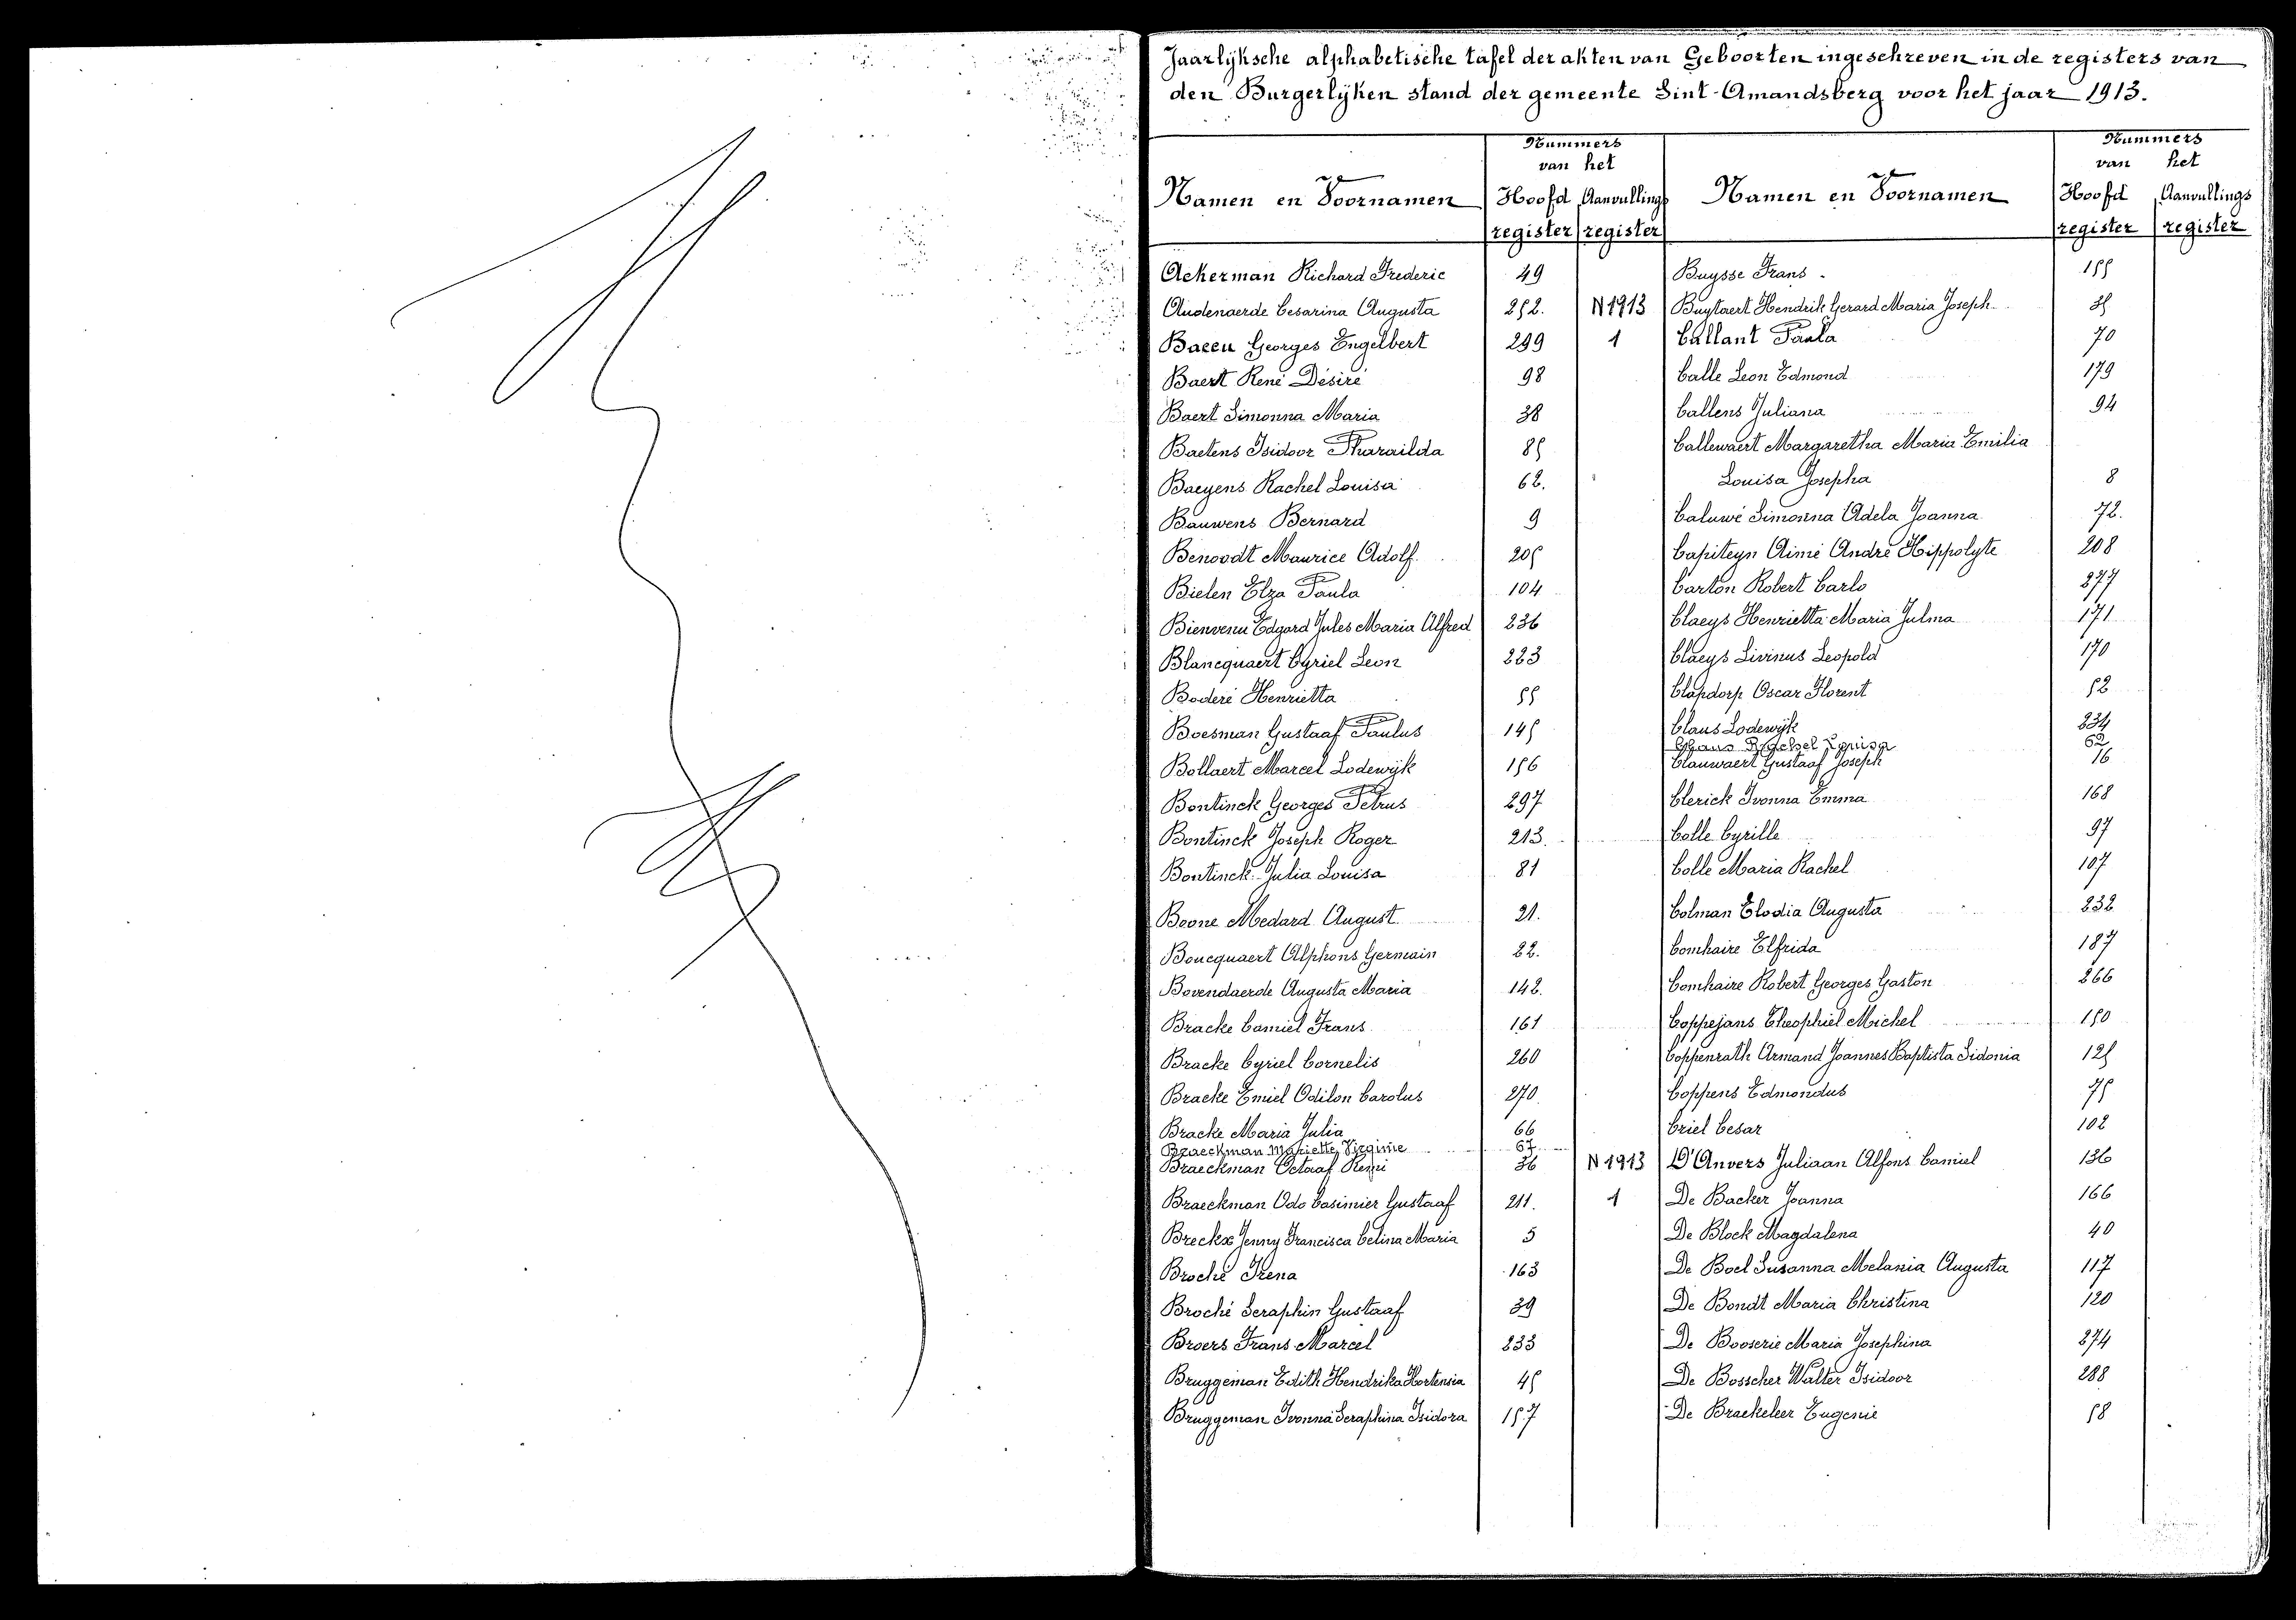 Jaarlijksche alphabetische tafel der akten van Geboorten ingeschreven in de registers van
den Burgerlijken stand der gemeente Sint-Amandsberg voor het jaar 1913.
Namen en Voornamen
Nummers
van het
Hoofd register
Aanvullings register
Ackerman Richard Frederic 49
Audenaerde Cesarina Augusta 252. N 1913
Baccu Georges Engelbert 299 1
Baert René Désiré 98
Baert Simonna Maria 38
Baetens Isidoor Tharailda 85
Baeyens Rachel Louisa 62.
Bauwens Bernard 9
Benoodt Maurice Adolf. 205
Bielen Elza Paula 104
Bienvenu Edgard Jules Maria Alfred 236
Blancquaert Cyriel Leon 223
Boderé Henrietta 55
Boesman Gustaaf Paulus 145
Bollaert Marcel Lodewijk 156
Bontinck Georges Petrus 297
Bontinck Joseph Roger 213.
Bontinck Julia Louisa 81
Boone Medard August 21.
Boucquaert Alphons Germain 22.
Bovendaerde Augusta Maria 142.
Bracke Camiel Frans 161
Bracke Cyriel Cornelis 260
Bracke Emiel Odilon Carolus 270
Bracke Maria Julia 66
Braeckman Mariette Virginie 67
Braeckman Octaaf Remi 36 N 1913
Braeckman Odo Casimier Gustaaf 211. 1
Breckx Jenny Francisca Celina Maria 5
Broché Irena 163
Broché Seraphin Gustaaf 39
Broers Frans Marcel 233
Bruggeman Edith Hendrika Hortensia 45
Bruggeman Ivonna Seraphina Isidora 157
Namen en Voornamen
Nummers
van het
Hoofd register
Aanvullings register
Buysse Frans 155
Buytaert Hendrik Gerard Maria Joseph 35
Callant Paula 70
Calle Leon Edmond 179
Callens Juliana 94
Callewaert Margaretha Maria Emilia
Louisa Josepha 8
Caluwé Simonna Adela Joanna 72.
Capiteyn Aimé André Hippolyte 208
Carton Robert Carlo 277
Claeys Henrietta Maria Julma 171
Claeys Livinus Leopold 170
Clapdorp Oscar Florent 52
Claus Lodewijk 234
Claus Rachel Louisa 62
Clauwaert Gustaaf Joseph 16
Clerick Ivonna Emma 168
Colle Cyrille 97
Colle Maria Rachel 107
Colman Elodia Augusta 232
Comhaire Elfrida 187
Comhaire Robert Georges Gaston 266
Coppejans Theophiel Michel 150
Coppenrath Armand Joannes Baptista Sidonia 125
Coppens Edmondus 75
Criel Cesar 102
D'Anvers Juliaan Alfons Camiel 136
De Backer Joanna 166
De Block Magdalena 40
De Boel Susanna Melania Augusta 117
De Bondt Maria Christina 120
De Booserie Maria Josephina 274
De Bosscher Walter Isidoor 288
De Braekeleer Eugenie 58